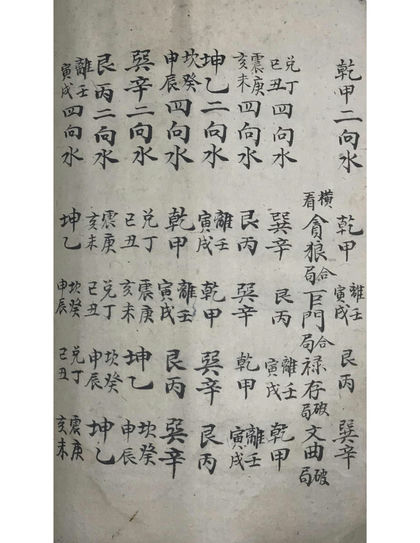 乾甲二向水 乾甲 離壬寅戌 艮丙 巽辛
橫看 貪狼合局 巨門合局 祿存破局 文曲破局
兌丁巳丑四向水 巽辛 艮丙 離壬寅戌 乾甲
震庚亥未四向水 艮丙 巽辛 乾甲 離壬寅戌
坤乙二向水 離壬寅戌 乾甲 巽辛 艮丙
坎癸申辰四向水 乾甲 離壬寅戌 艮丙 巽辛
巽辛二向水 兌丁巳丑 震庚亥未 坤乙 坎癸申辰
艮丙二向水 震庚亥未 兌丁巳丑 坎癸申辰 坤乙
離壬寅戌四向水 坤乙 坎癸申辰 兌丁巳丑 震庚亥未